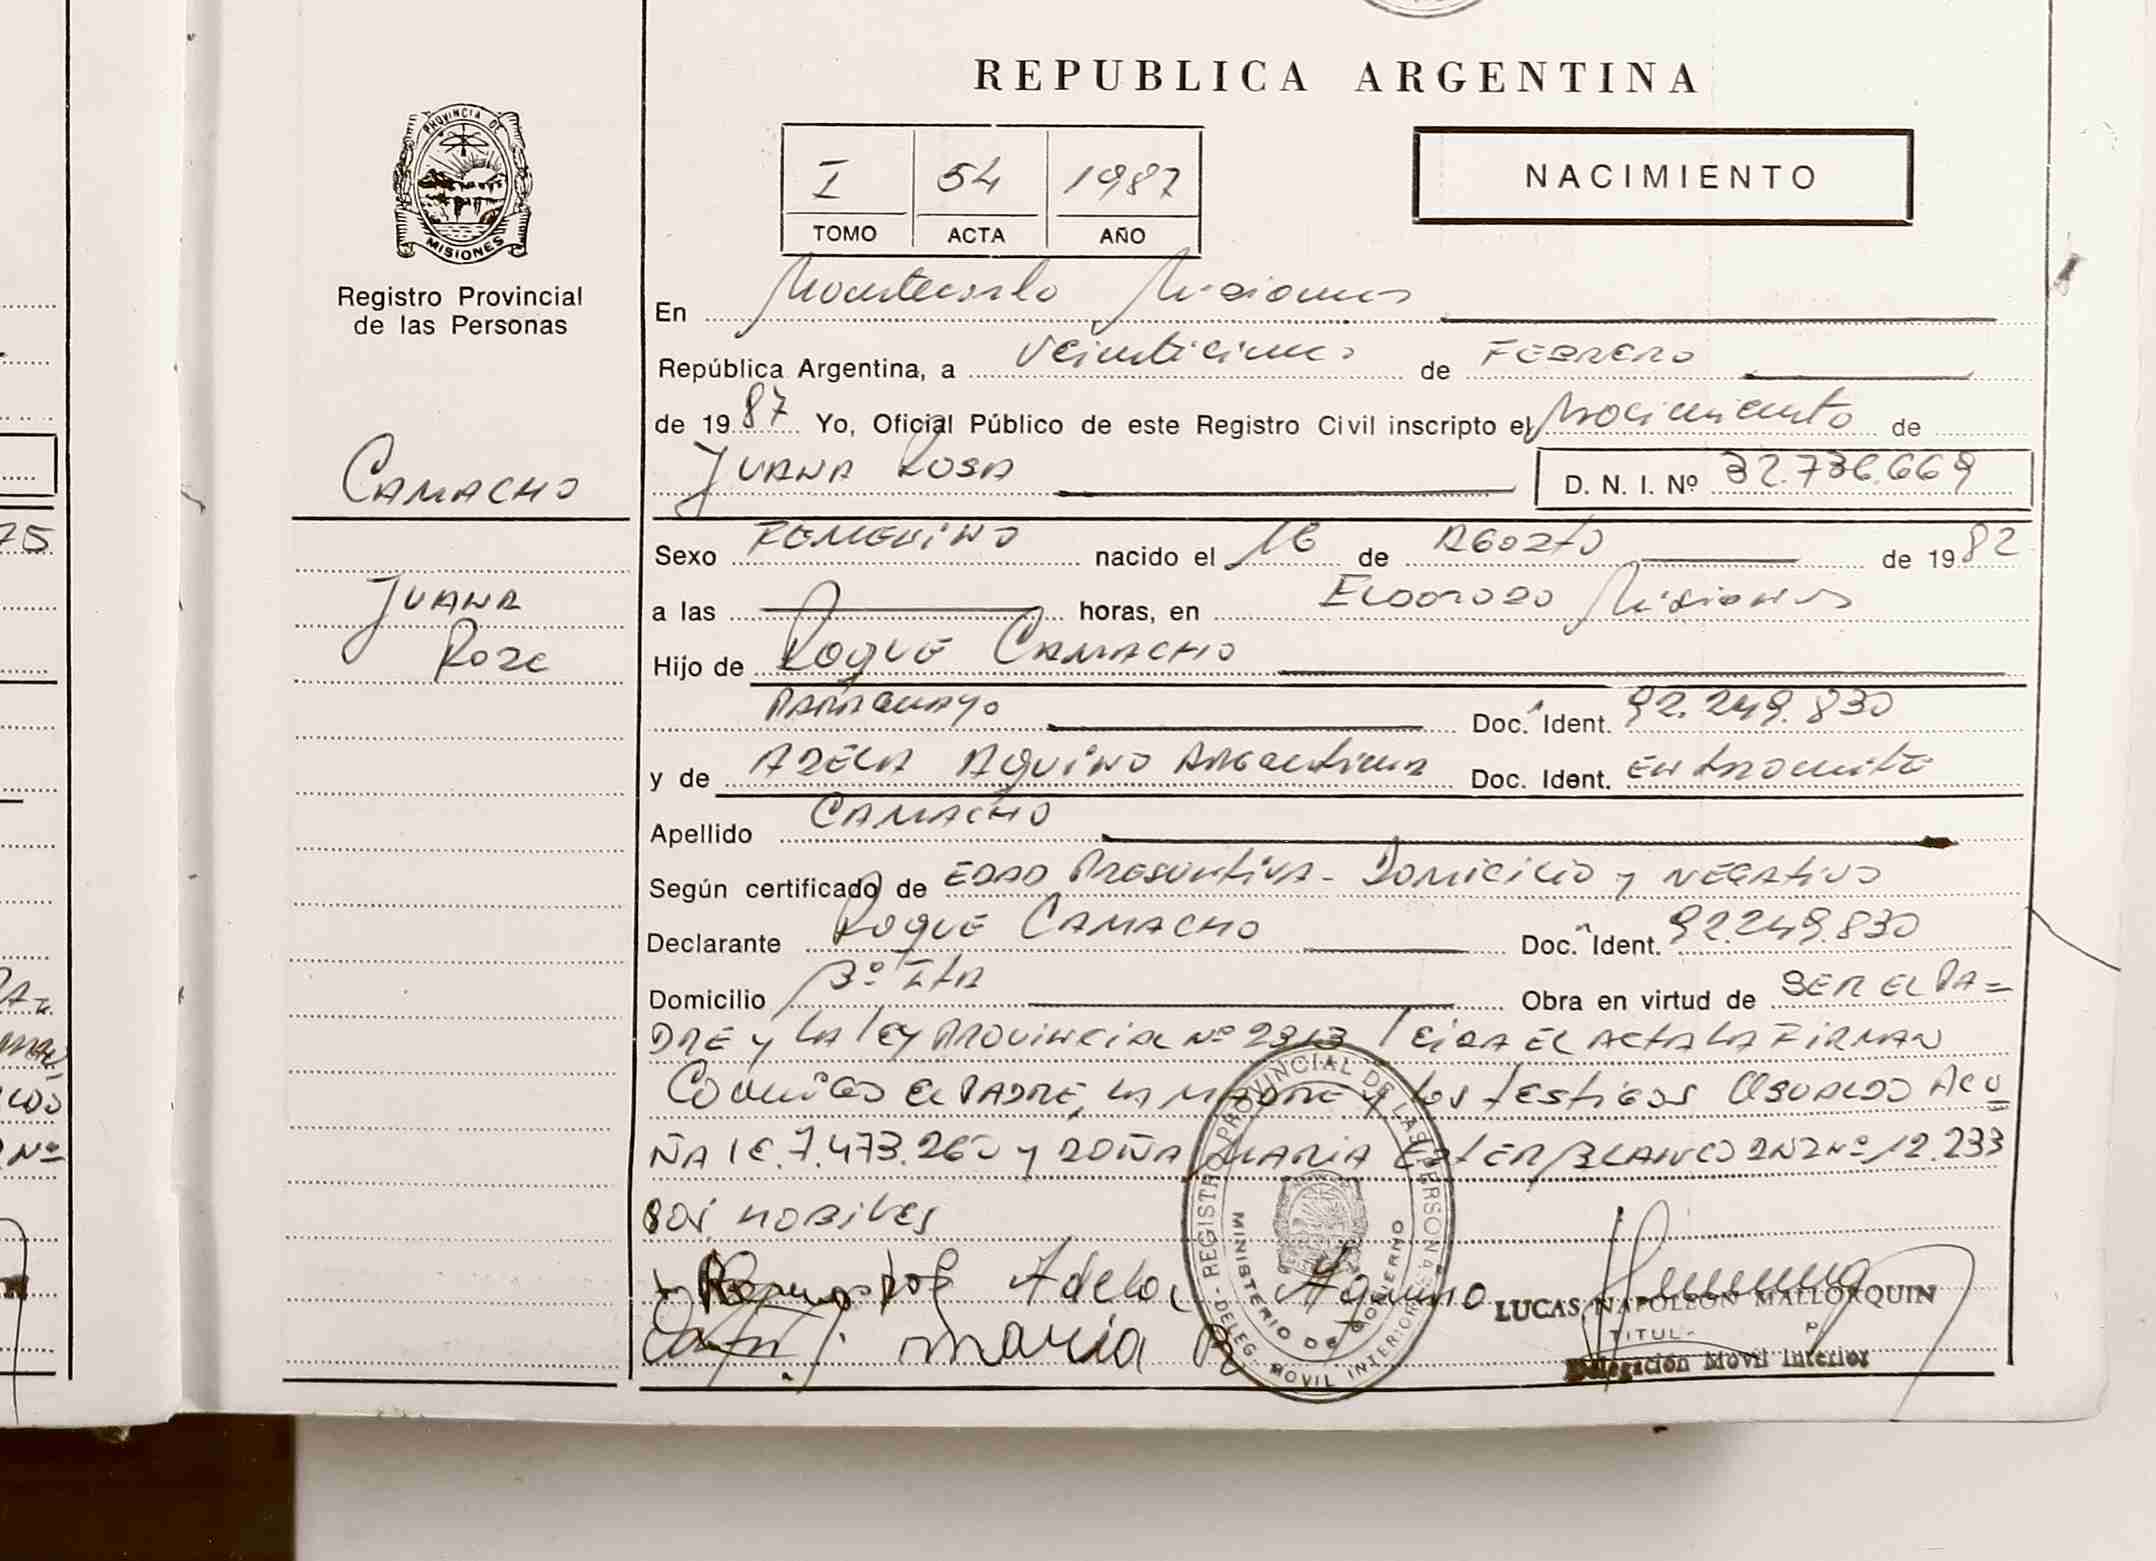 REPUBLICA ARGENTINA
PROVINCIA DE
MISIONES
Registro Provincial
de las Personas
I 54 1987
TOMO ACTA AÑO
NACIMIENTO
En Montecarlo Misiones
República Argentina, a veinticinco de FEBRERO
de 1987 Yo, Oficial Público de este Registro Civil inscripto el Nacimiento de
CAMACHO
JUANA ROSA D. N. I. Nº 32.736.669
Sexo FEMENINO nacido el 16 de AGOSTO de 1982
JUANA
a las horas, en ELDORADO Misiones
ROSA
Hijo de ROQUE CAMACHO
PARAGUAYO Doc. Ident. 92.249.830
y de ADELA AQUINO ARGENTINA Doc. Ident. EN TRAMITE
Apellido CAMACHO
Según certificado de EDAD PRESUNTIVA - DOMICILIO y NEGATIVO
Declarante ROQUE CAMACHO Doc. Ident. 92.249.830
Domicilio Bº ITA Obra en virtud de SER EL PA=
DRE y LA LEY PROVINCIAL Nº 2313 LEIDA EL ACTA LA FIRMAN
CONMIGO EL PADRE, LA MADRE y LOS TESTIGOS OSVALDO ACU
ÑA I E. 7.473.260 y DOÑA MARIA ESTER BLANCO DNI Nº 12.233
HABILES
Adela Aquino
LUCAS NAPOLEON MALLORQUIN
Maria
TITUL
Delegación Movil Interior
REGISTRO PROVINCIAL DE LAS PERSONAS
MINISTERIO DE GOBIERNO
DELEG. MOVIL INTERIOR
75
Nº